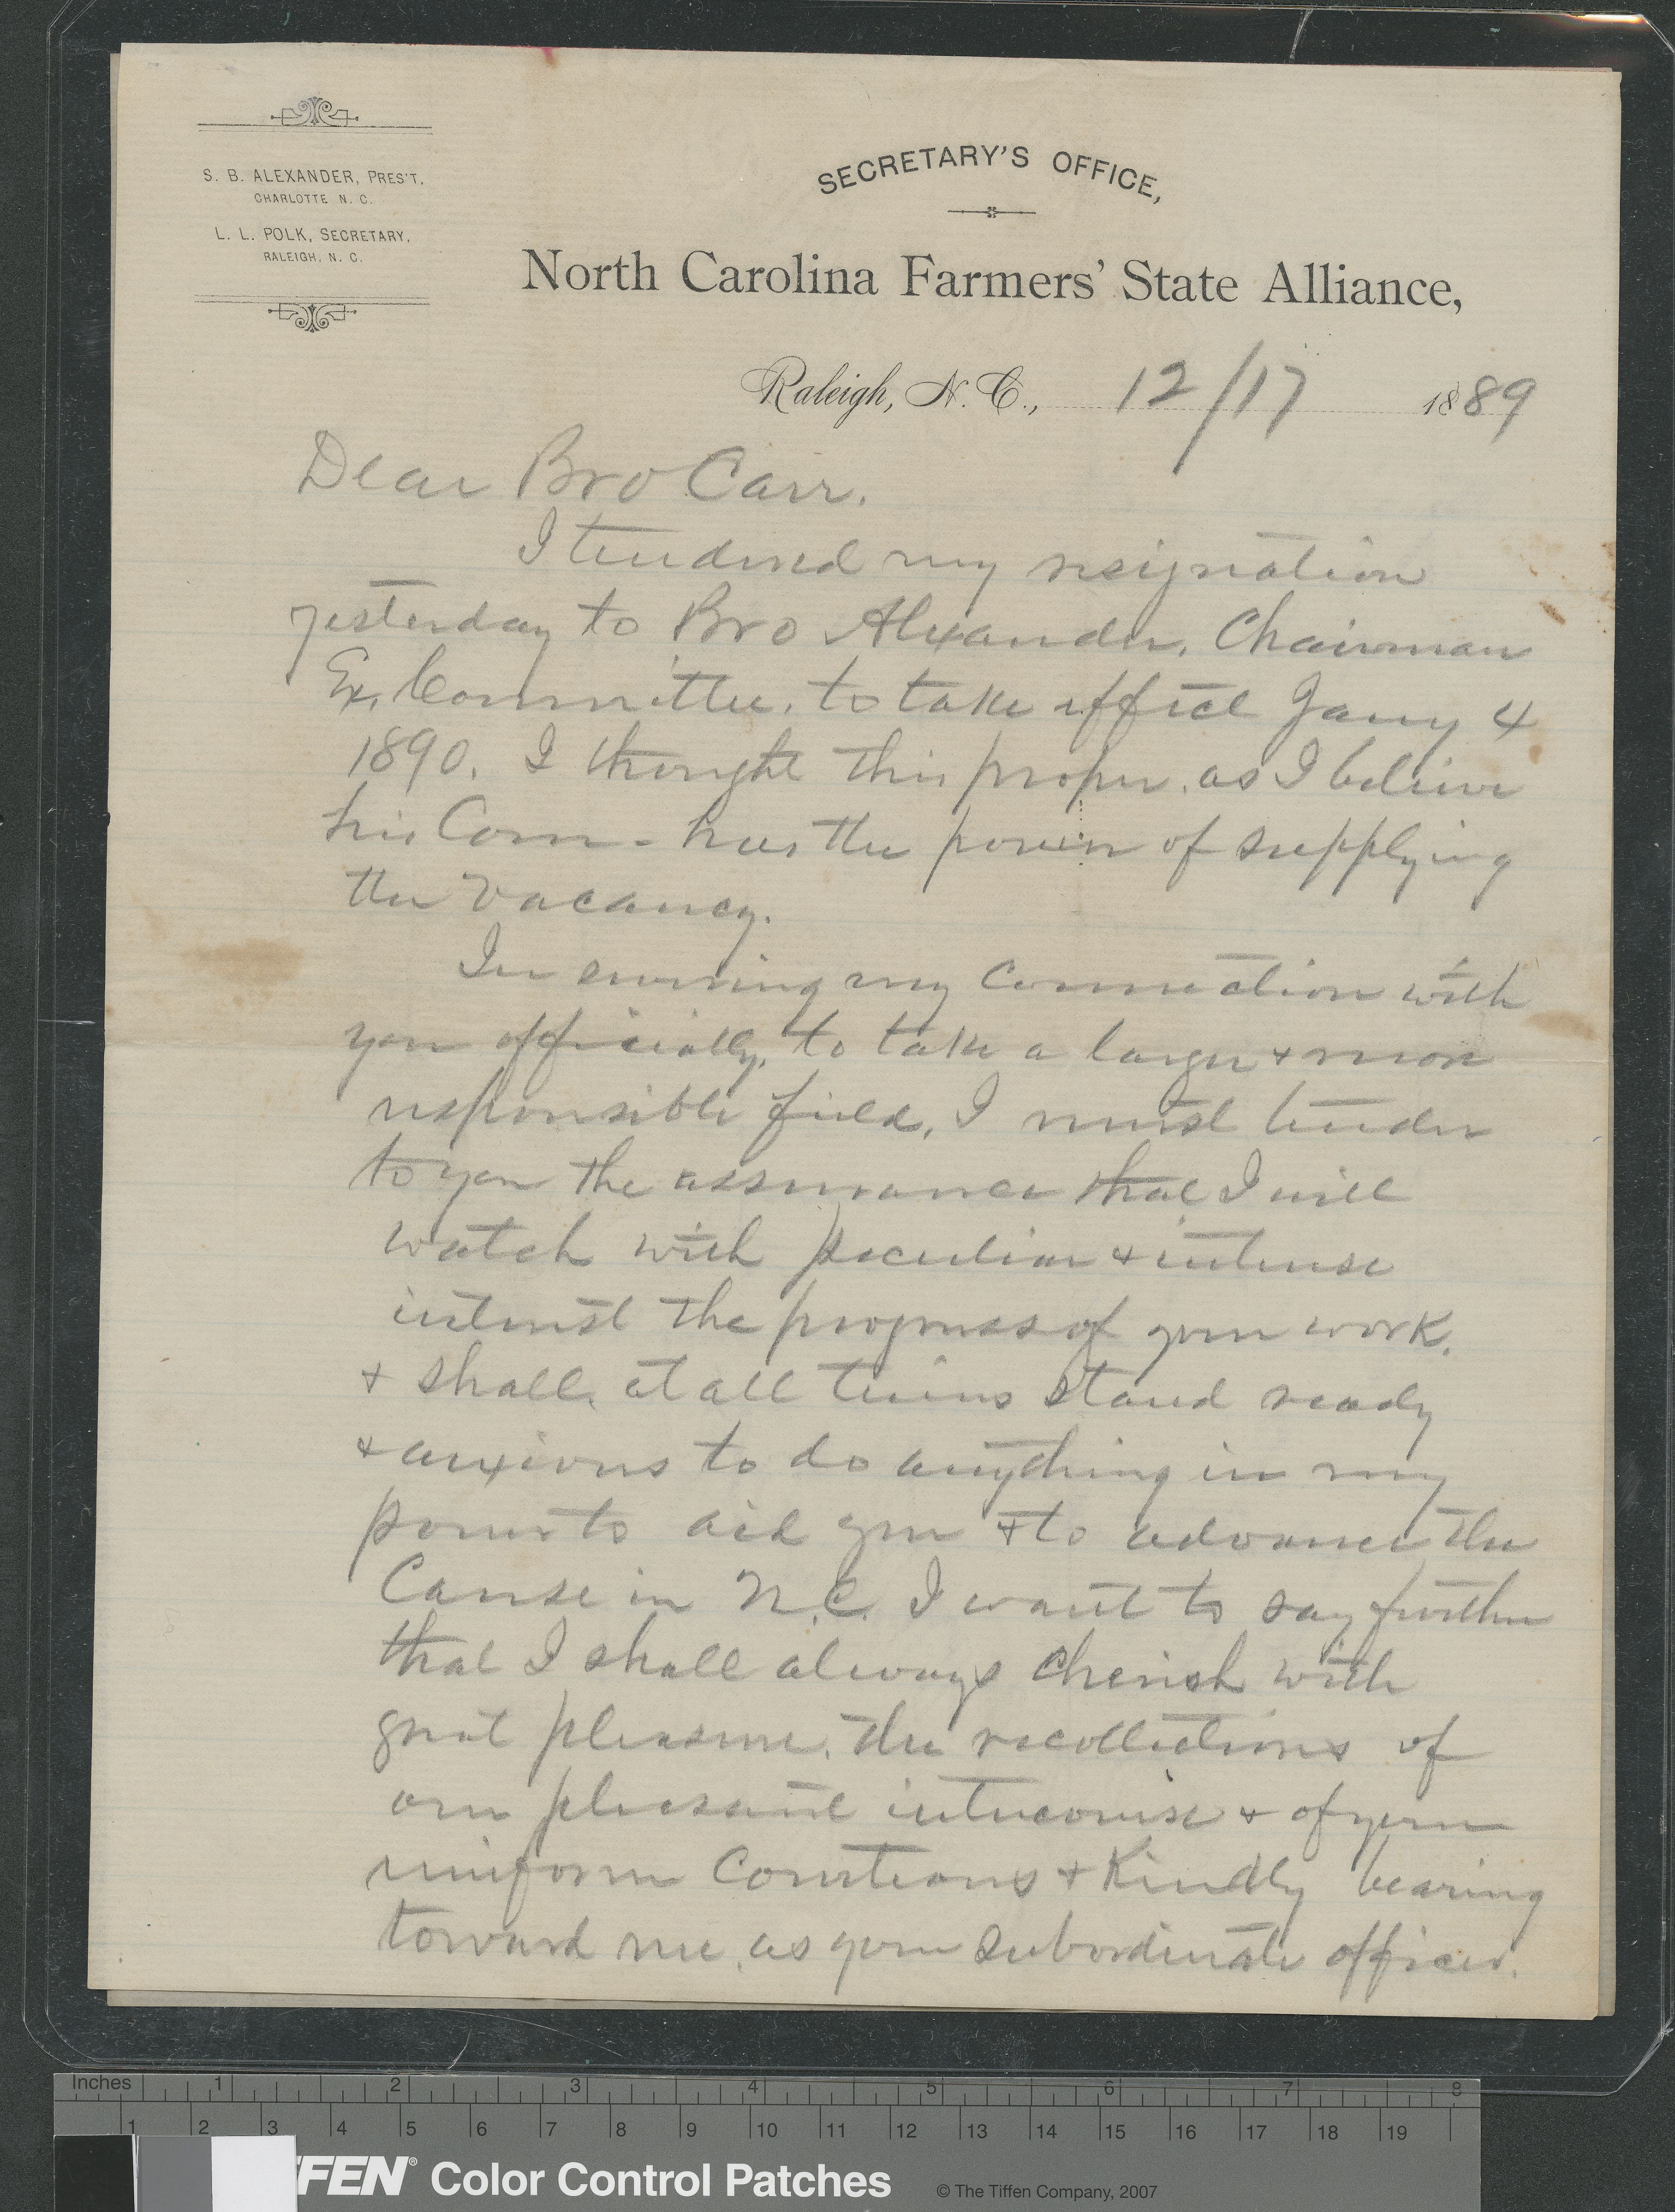 S. B. ALEXANDER, PRES'T,
CHARLOTTE N. C.
L. L. POLK, SECRETARY,
RALEIGH, N. C.
SECRETARY'S OFFICE,
North Carolina Farmers' State Alliance,
Raleigh, N. C., 12/17 1889
Dear Bro Carr.
I tendered my resignation
yesterday to Bro Alexander, Chairman
Ex. Committee, to take effect Jany 4
1890. I thought this proper, as I believe
his Com - has the power of supplying
the vacancy.
In severing my connection with
you officially, to take a larger & more
responsible field, I must tender
to you the assurance that I will
watch with peculiar & intense
interest the progress of your work,
& shall, at all times stand ready
& anxious to do anything in my
power to aid you & to advance the
Cause in N.C. I want to say further
that I shall always cherish with
great pleasure, the recollections of
our pleasant intercourse & of your
uniform Courteous & Kindly bearing
toward me, as your subordinate officer.
Inches 1 2 3 4 5 6 7 8
1 2 3 4 5 6 7 8 9 10 11 12 13 14 15 16 17 18 19
FFEN® Color Control Patches © The Tiffen Company, 2007